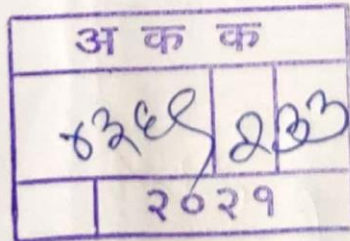 अ क क
४३६९ २ ३३
२०२१